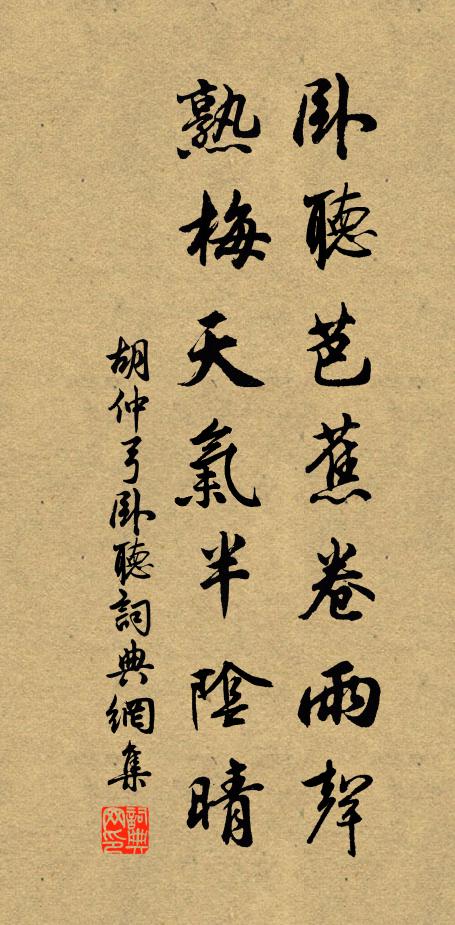 卧聽芭蕉卷雨聲
熟梅天氣半陰晴
胡仲弓卧聽詞典網集
詞典网印